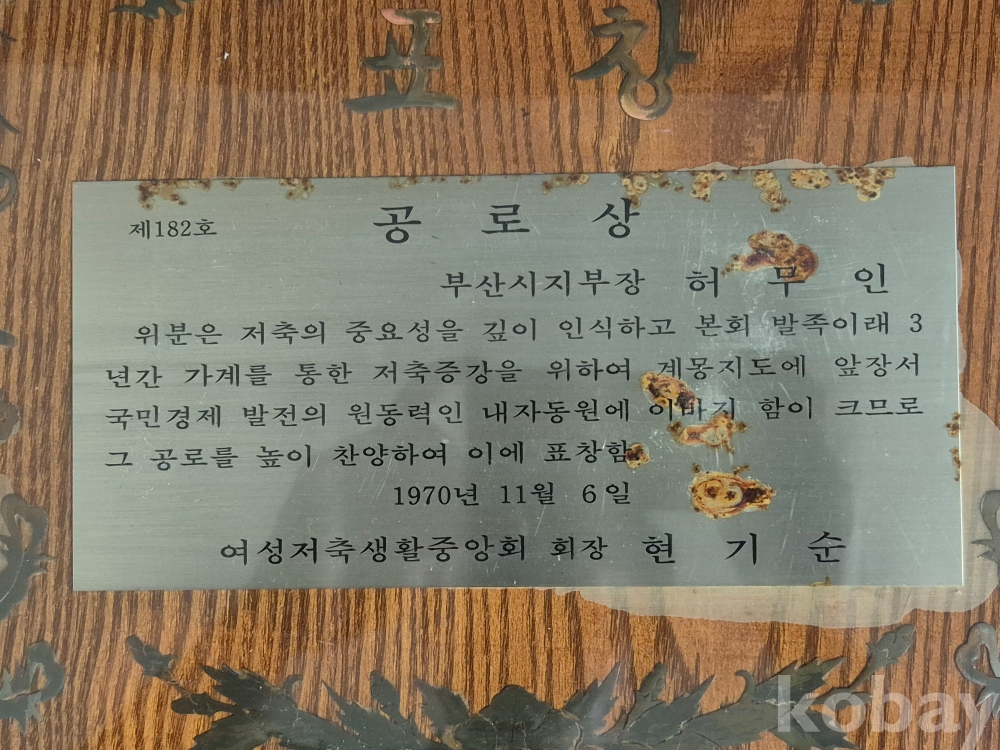 표창
제182호 공로상
부산시지부장 허무인
위분은 저축의 중요성을 깊이 인식하고 본회 발족이래 3
년간 가계를 통한 저축증강을 위하여 계몽지도에 앞장서
국민경제 발전의 원동력인 내자동원에 이바지 함이 크므로
그 공로를 높이 찬양하여 이에 표창함
1970년 11월 6일
여성저축생활중앙회 회장 현기순
kobay